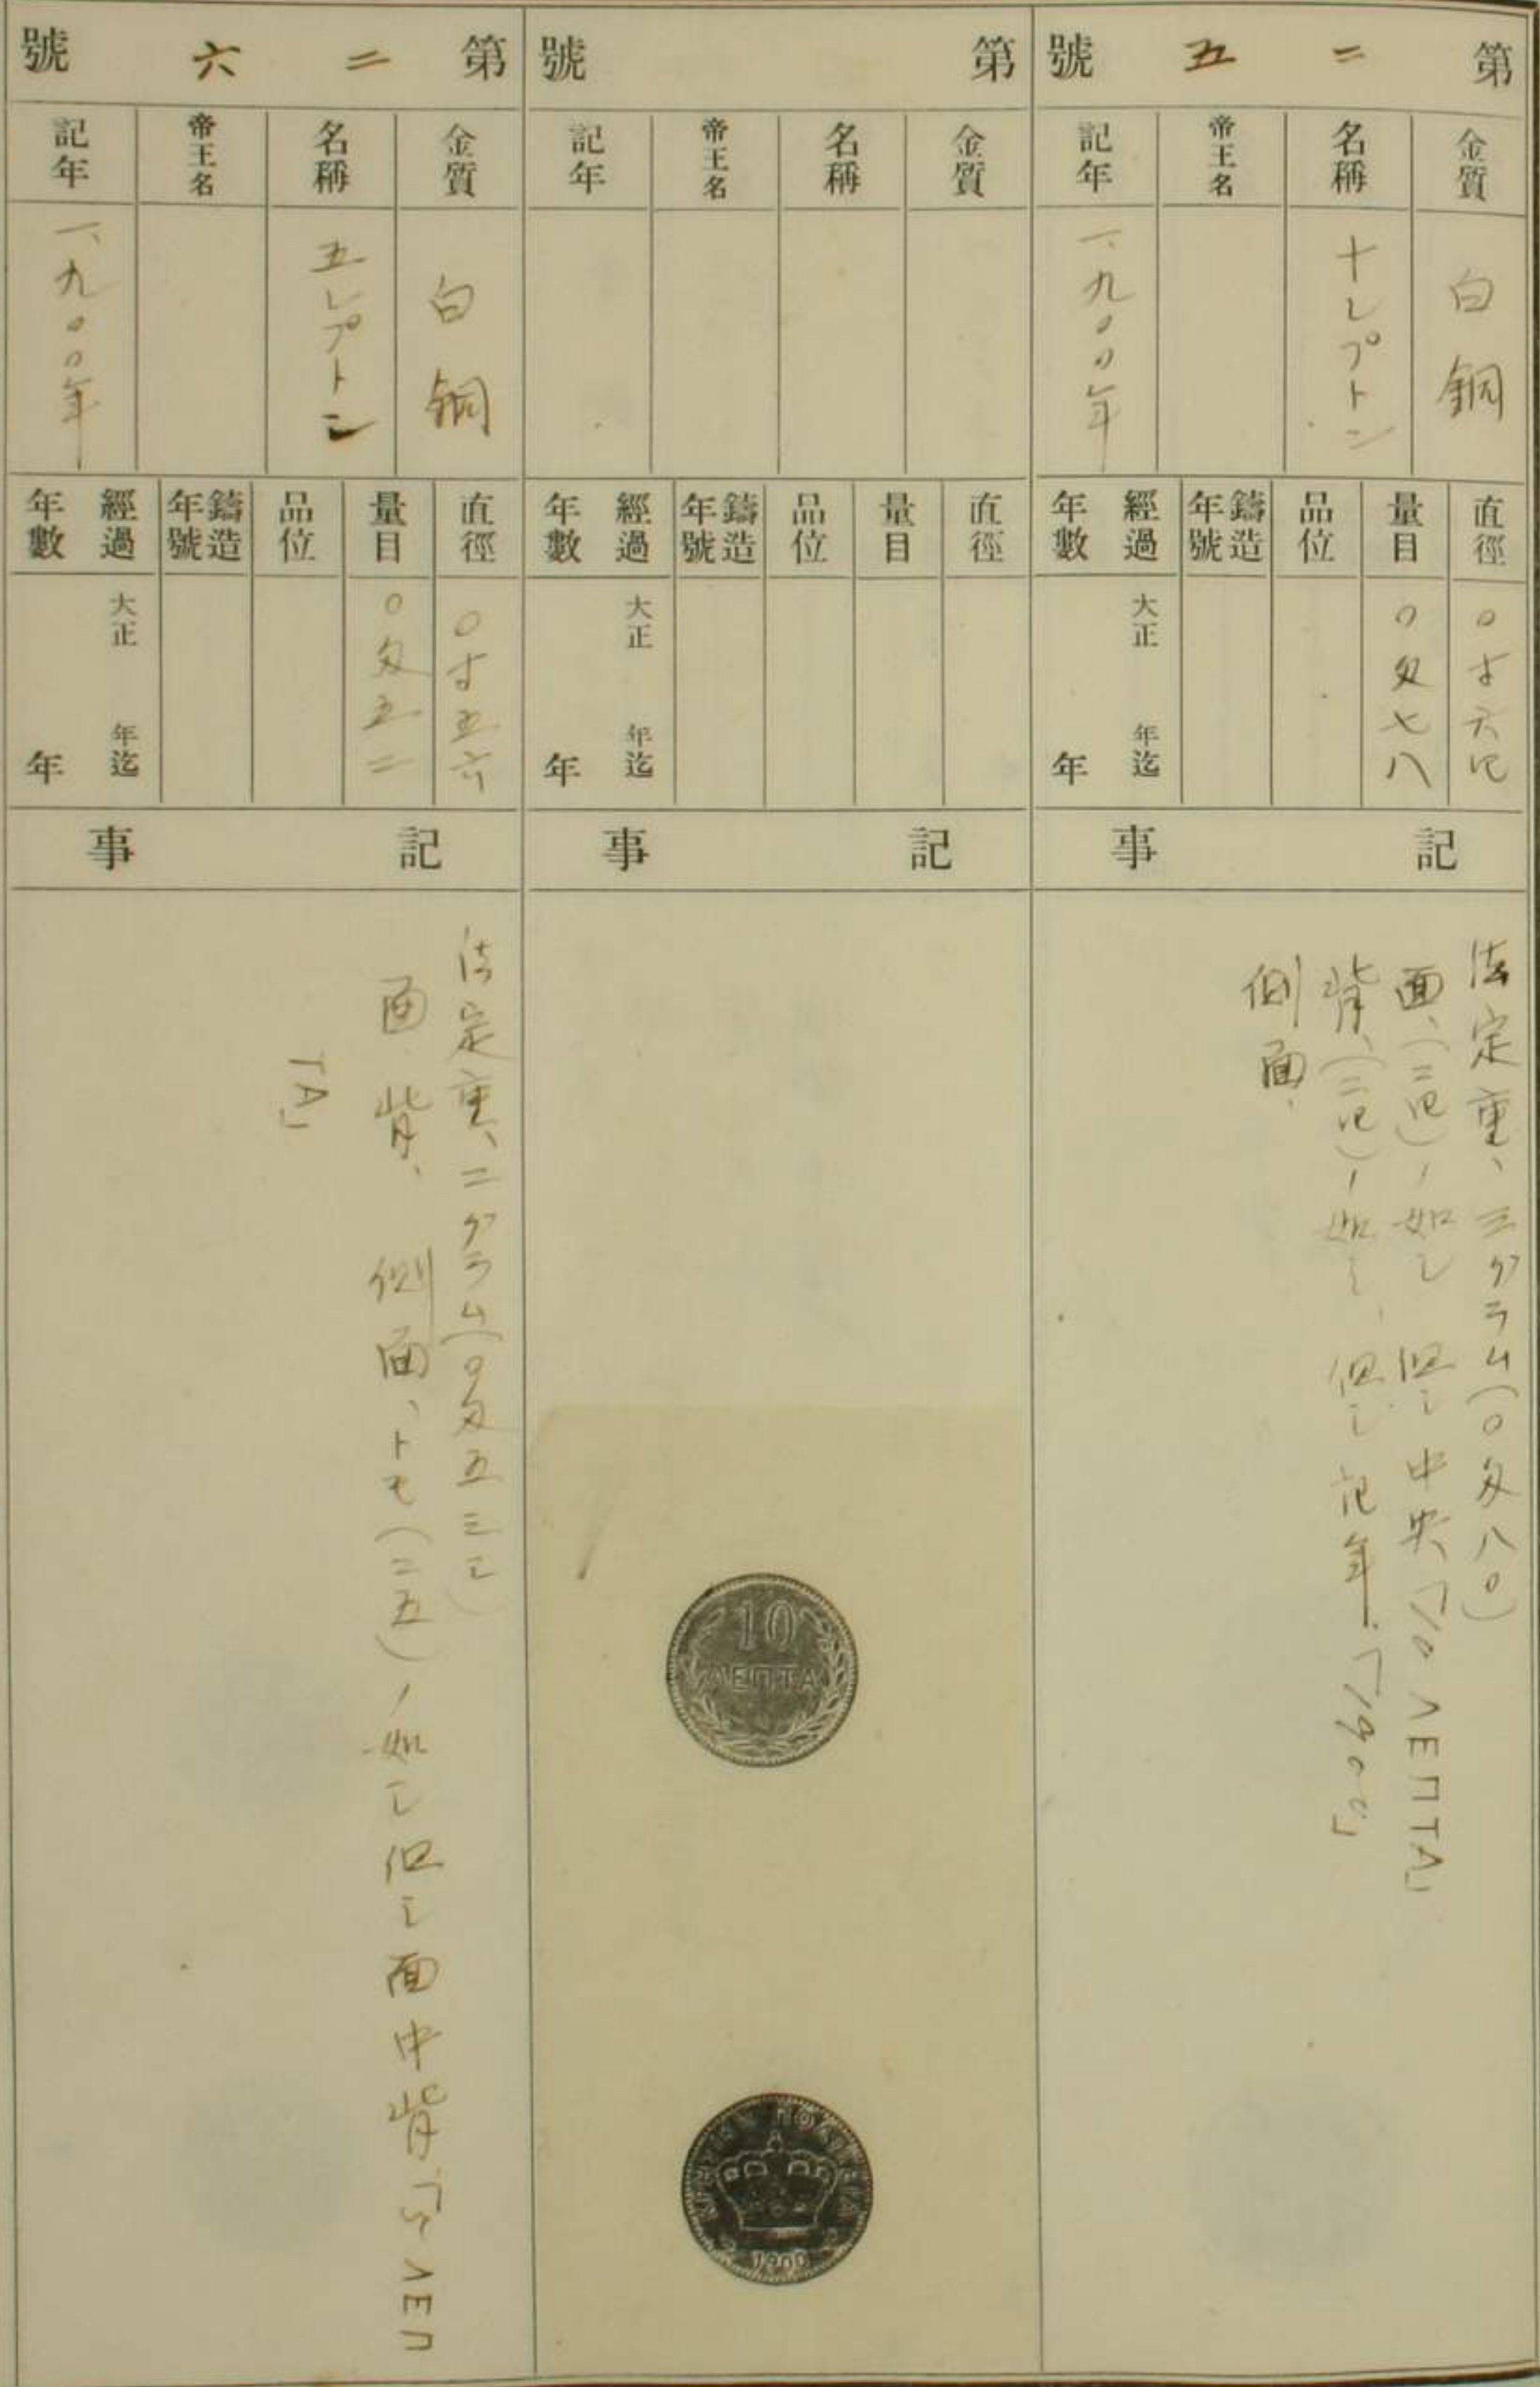 第二五號
金質
白銅
名稱
十レプトン
帝王名
記年
一、九〇〇年
直徑
〇寸六四
量目
〇匁七八
品位
鑄造年號
經過年數
大正　年迄
年
記事
法定重、三グラム(〇匁八〇)
面、(二四)ノ如シ 但シ中央「10 ΛΕΠΤΑ」
背、(二四)ノ如シ、但シ記年「1900」
側面、
第　號
金質
名稱
帝王名
記年
直徑
量目
品位
鑄造年號
經過年數
大正　年迄
年
記事
10
ΛΕΠΤΑ
ΚΡΗΤΙΚΗ ΠΟΛΙΤΕΙΑ
1900
第二六號
金質
白銅
名稱
五レプトン
帝王名
記年
一、九〇〇年
直徑
〇寸五六
量目
〇匁五二
品位
鑄造年號
經過年數
大正　年迄
年
記事
法定重、二グラム(〇匁五三三)
面、背、側面、トモ(二五)ノ如シ但シ面中背「5 ΛΕΠ
ΤΑ」